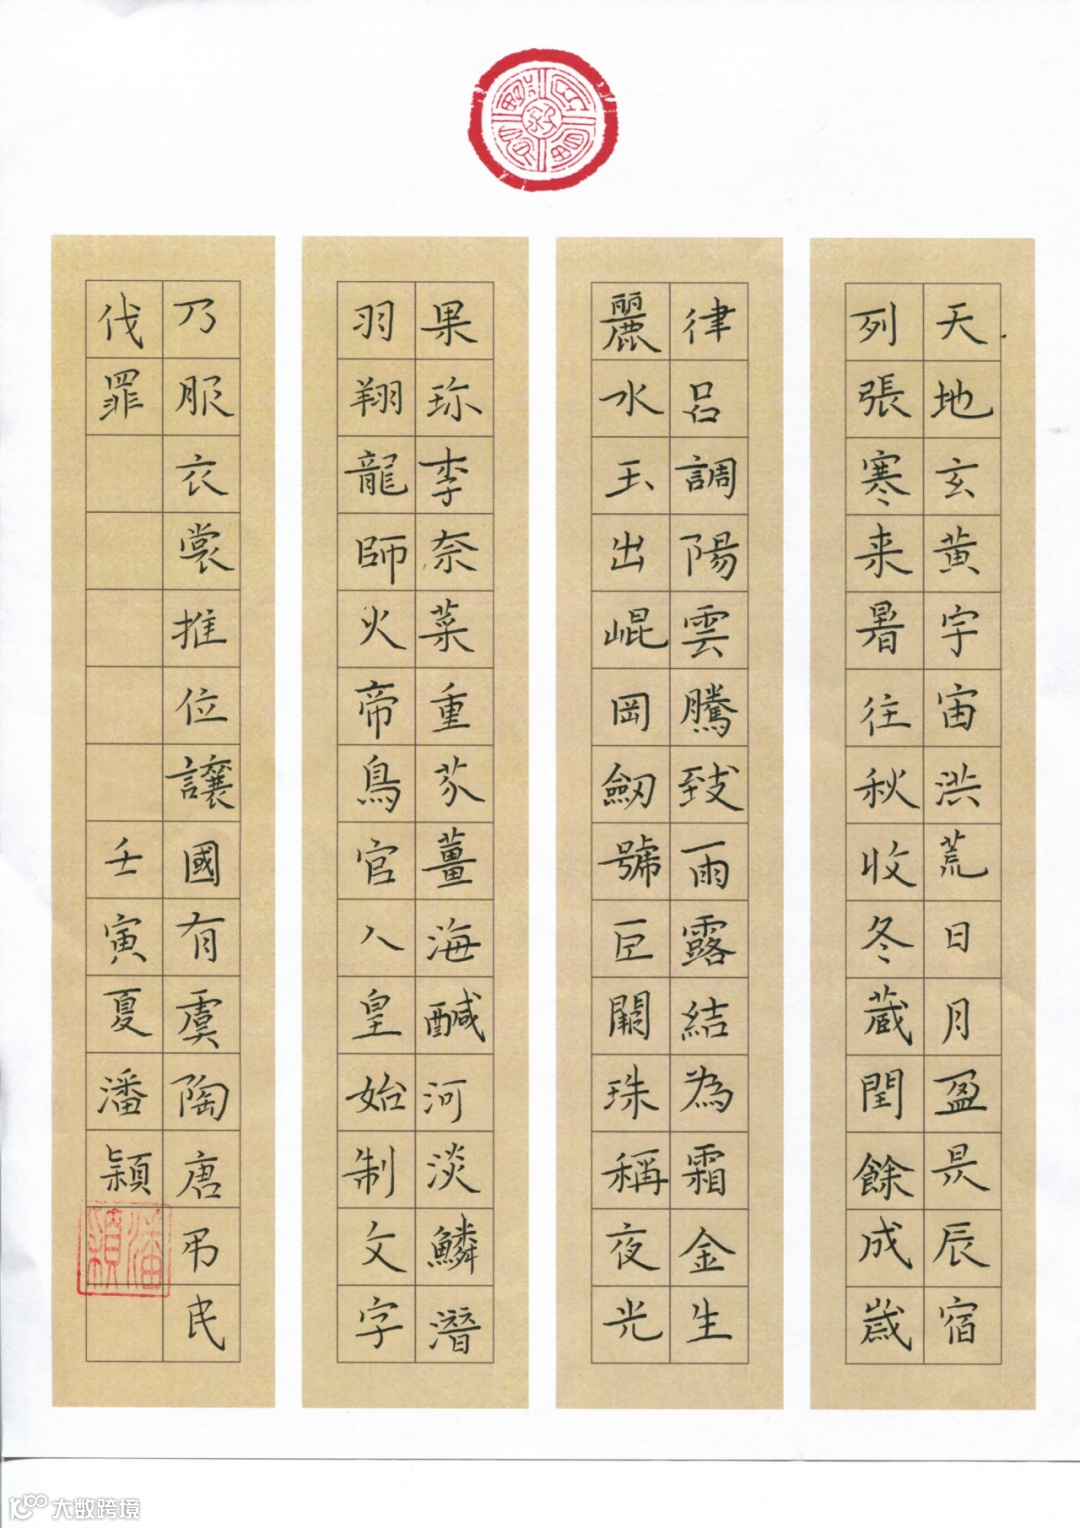 天地玄黄宇宙洪荒日月盈昃辰宿
列張寒来暑往秋收冬蔵閏餘成歲
律吕調陽雲騰致雨露結為霜金生
麗水玉出崐岡劒號巨闕珠稱夜光
果珎李柰菜重芥薑海鹹河淡鱗潛
羽翔龍師火帝鳥官人皇始制文字
乃服衣裳推位讓國有虞陶唐弔民
伐罪
壬寅夏潘穎
潘穎
大数跨境